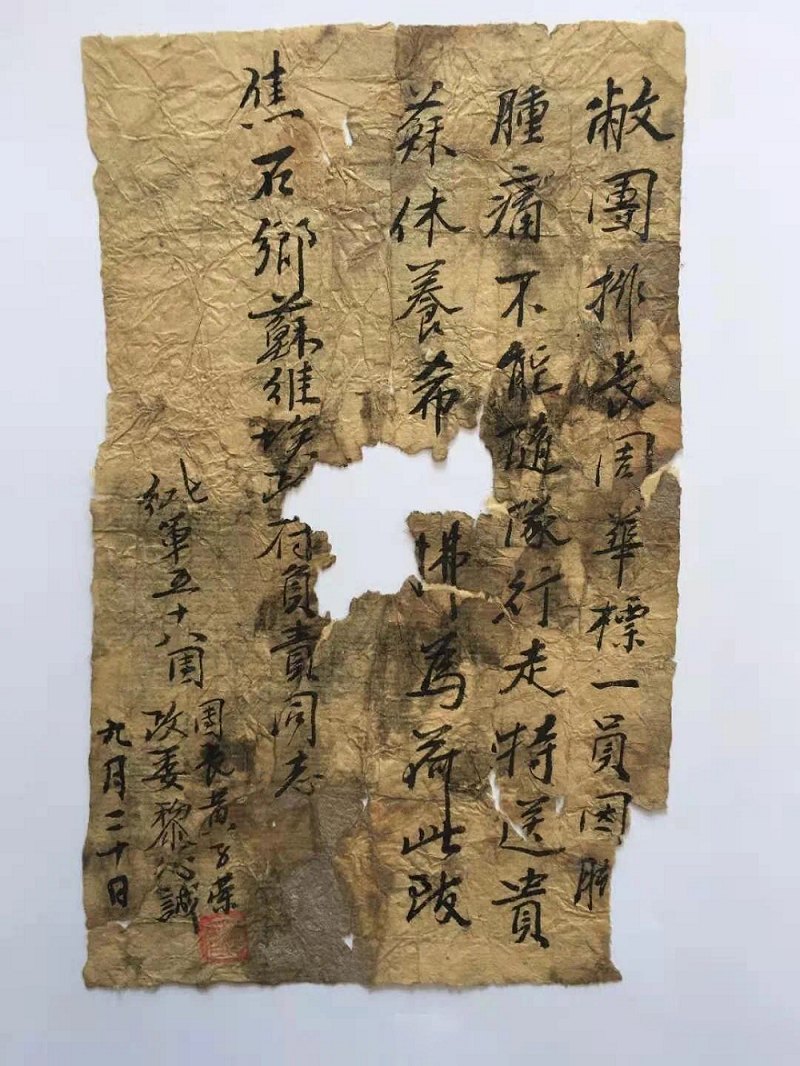 敝團排長周華標一員因腳
腫痛不能隨隊行走特送貴
蘇休養希 怫為荷此致
焦石鄉蘇維埃政府負責同志
紅七軍五十八團
團長黃子榮
政委黎心誠
九月二十日